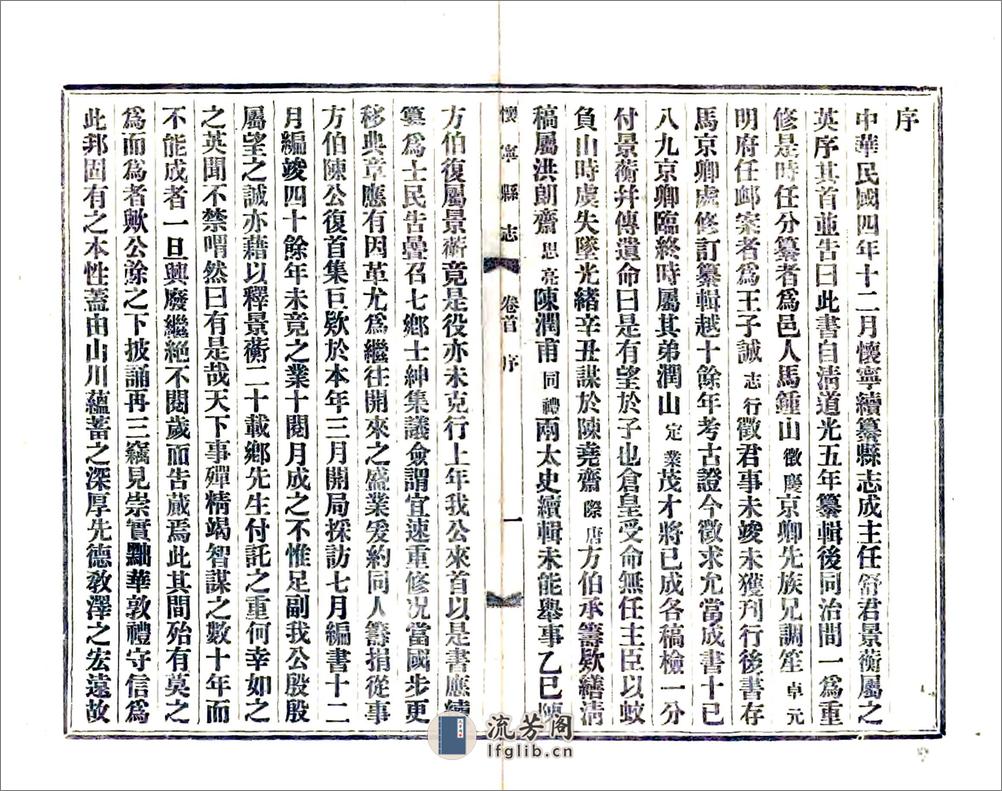 序
中華民國四年十二月懷寧續纂縣志成主任舒君景蘅屬之
英序其首並告曰此書自清道光五年纂輯後同治間一為重
修是時任分纂者為邑人馬鍾山徵慶京卿先族兄調笙卓元
明府任邮案者為王子誠志行徵君事未竣未獲刋行後書存
馬京卿處修訂纂輯越十餘年考古證今徵求允當成書十已
八九京卿臨終時屬其弟潤山定業茂才將已成各稿檢一分
付景蘅幷傳遺命曰是有望於子也倉皇受命無任主臣以蚊
負山時虞失墜光緒辛丑謀於陳堯齋際唐方伯承籌欵繕清
稿屬洪朗齋思亮陳潤甫同禮兩太史續輯未能舉事乙巳陳
懷寧縣志 卷首 序 一
方伯復屬景蘅竟是役亦未克行上年我公來首以是書應續
纂為士民告曡召七鄉士紳集議僉謂宜速重修况當國步更
移典章應有因革尤為繼往開來之盛業爰約同人籌捐從事
方伯陳公復首集巨欵於本年三月開局採訪七月編書十二
月編竣四十餘年未竟之業十閱月成之不惟足副我公殷殷
屬望之誠亦藉以釋景蘅二十載鄉先生付託之重何幸如之
之英聞不禁喟然曰有是哉天下事殫精竭智謀之數十年而
不能成者一旦興廢繼絕不閱歲而告蕆焉此其間殆有莫之
為而為者歟公餘之下披誦再三竊見崇實黜華敦禮守信為
此邦固有之本性蓋由山川蘊蓄之深厚先德敎澤之宏遠故
流芳阁
lfglib.cn